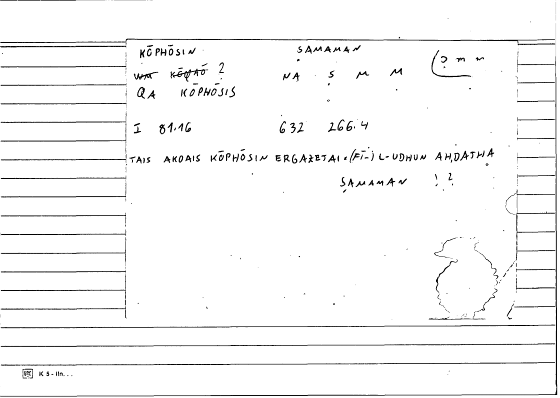 KŌPHŌSIN ṢAMAMAN (? m m
KŌQAŌ ? NA Ṣ M M
QA KŌPHŌSIS
I 81.16 632 266.4
TAIS AKOAIS KŌPHŌSIN ERGAZETAI. (FĪ-) L-UDHUN AḤDATHA
ṢAMAMAN ! ?
K 5 - IIn. . .